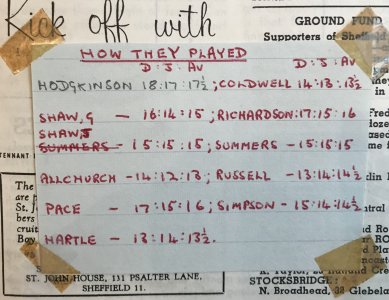 Kick off with
GROUND FUND
Supporters of Sheffield
HOW THEY PLAYED
D : J : Av D : J : Av
HODGKINSON 18:17:17½ ; COLDWELL 14:13:13½
SHAW, G — 16:14:15 ; RICHARDSON: 17:15:16
SHAW J
SUMMERS — 15:15:15 ; SUMMERS — 15:15:15
ALLCHURCH — 14:12:13 ; RUSSELL — 13:14:14½
PACE — 17:15:16 ; SIMPSON — 15:14:14½
HARTLE — 13:14:13½.
TENNANT
The
are p
St. J
bers
cruit
Bay,
ST. JOHN HOUSE, 151 PSALTER LANE,
SHEFFIELD 11.
STOCKSBRIDGE:
N. Broadhead, 38 Glebela